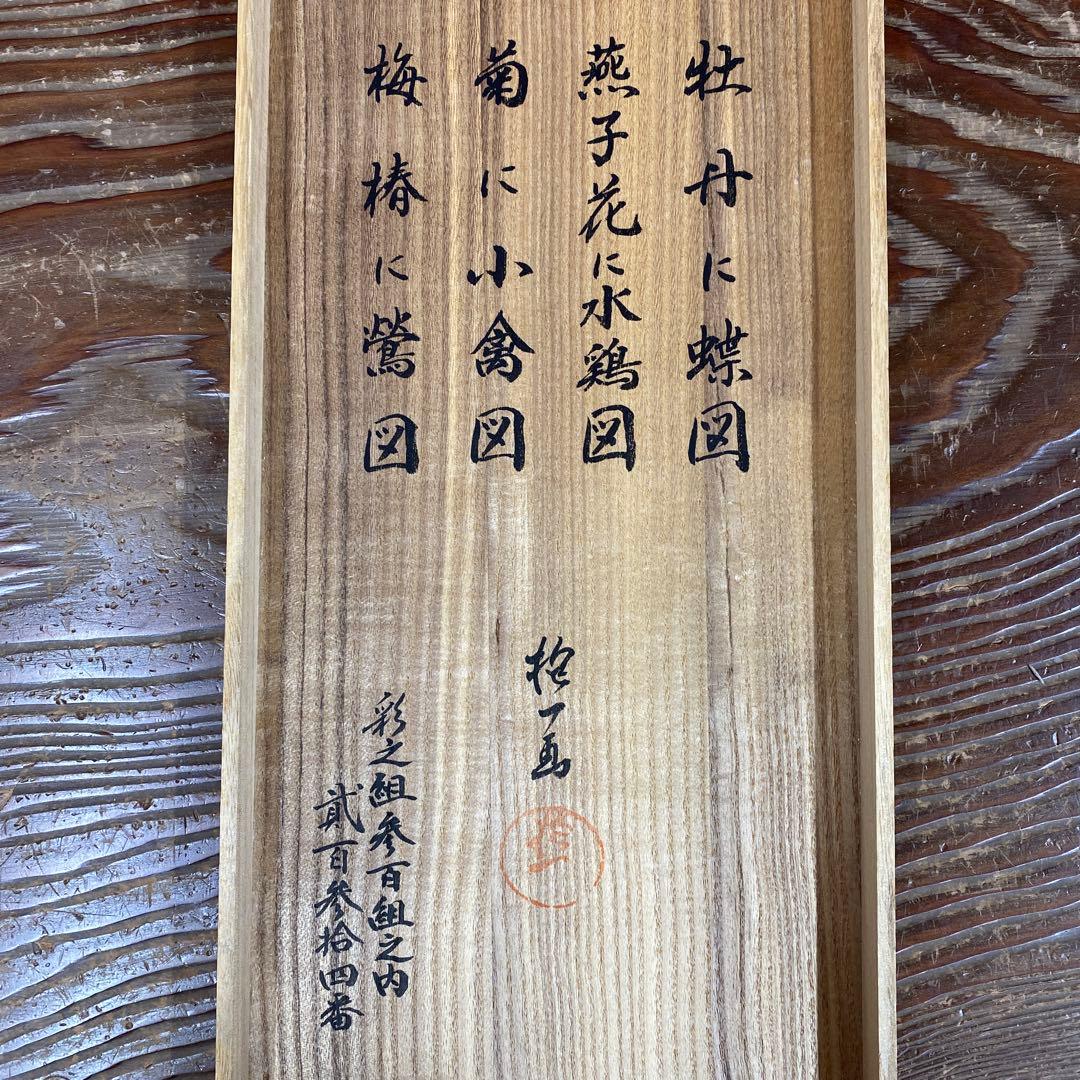 牡丹に蝶図
燕子花に水鶏図
菊に小禽図
梅椿に鶯図
一画
彩之組参百組之内
貳百参拾四番